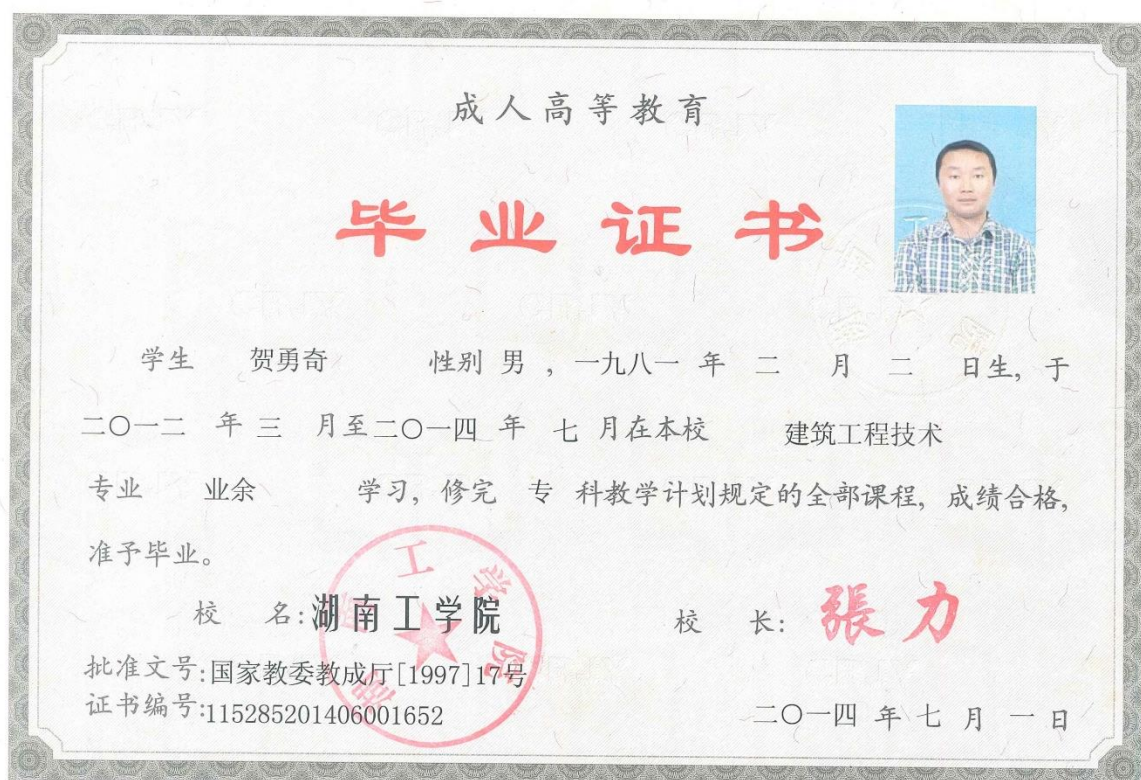 成人高等教育
毕业证书
学生 贺勇奇 性别 男 , 一九八一 年 二 月 二 日生, 于
二〇一二 年 三 月至二〇一四 年 七 月在本校 建筑工程技术
专业 业余 学习, 修完 专 科教学计划规定的全部课程, 成绩合格,
准予毕业。
校 名:湖南工学院
湖南工学院
校 长: 張力
批准文号:国家教委教成厅[1997]17号
证书编号:115285201406001652
二〇一四 年 七 月 一 日